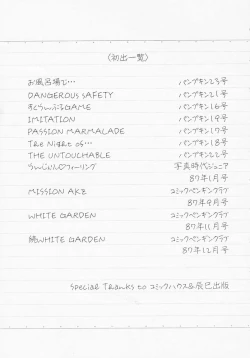 〈初出一覧〉
お風呂場で… パンプキン23号
DANGEROUS SAFETY パンプキン21号
すくらんぶるGAME パンプキン16号
IMITATION パンプキン19号
PASSION MARMALADE パンプキン17号
The Night of… パンプキン18号
THE UNTOUCHABLE パンプキン22号
らんじぇりんフィーリング 写真時代ジュニア
87年1月号
MISSION AKB コミックペンギンクラブ
87年9月号
WHITE GARDEN コミックペンギンクラブ
87年11月号
続WHITE GARDEN コミックペンギンクラブ
87年12月号
Special Thanks to コミックハウス&辰巳出版